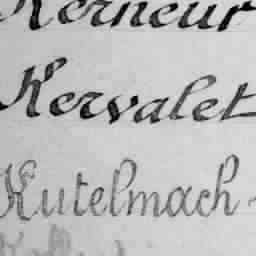 Kerneur
Kervalet
Kutelmach